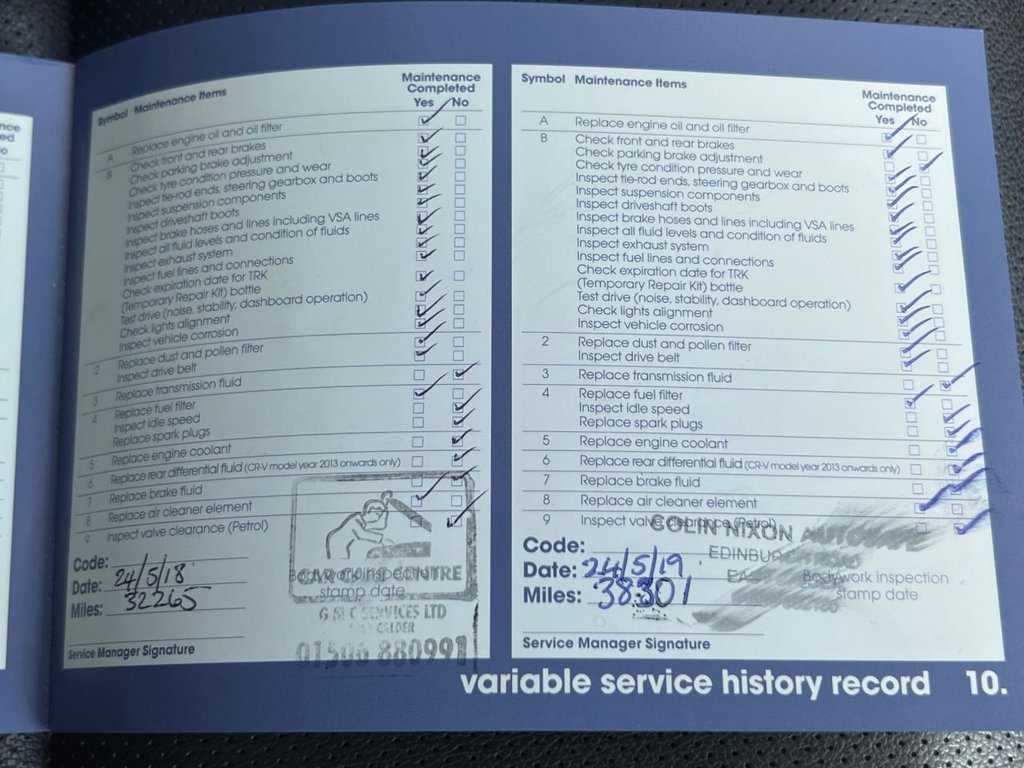 nce
ed
o
Symbol Maintenance Items
Maintenance
Completed
Yes No
A Replace engine oil and oil filter
B Check front and rear brakes
Check parking brake adjustment
Check tyre condition pressure and wear
Inspect tie-rod ends, steering gearbox and boots
Inspect suspension components
Inspect driveshaft boots
Inspect brake hoses and lines including VSA lines
Inspect all fluid levels and condition of fluids
Inspect exhaust system
Inspect fuel lines and connections
Check expiration date for TRK
(Temporary Repair Kit) bottle
Test drive (noise, stability, dashboard operation)
Check lights alignment
Inspect vehicle corrosion
2 Replace dust and pollen filter
Inspect drive belt
3 Replace transmission fluid
4 Replace fuel filter
Inspect idle speed
Replace spark plugs
5 Replace engine coolant
6 Replace rear differential fluid (CR-V model year 2013 onwards only)
7 Replace brake fluid
8 Replace air cleaner element
9 Inspect valve clearance (Petrol)
Code:
Date: 24/5/18
Miles: 32265
Bodywork inspection
stamp date
CENTRE
G M C SERVICES LTD
CALDER
01506 880991
Service Manager Signature
Symbol Maintenance Items
Maintenance
Completed
Yes No
A Replace engine oil and oil filter
B Check front and rear brakes
Check parking brake adjustment
Check tyre condition pressure and wear
Inspect tie-rod ends, steering gearbox and boots
Inspect suspension components
Inspect driveshaft boots
Inspect brake hoses and lines including VSA lines
Inspect all fluid levels and condition of fluids
Inspect exhaust system
Inspect fuel lines and connections
Check expiration date for TRK
(Temporary Repair Kit) bottle
Test drive (noise, stability, dashboard operation)
Check lights alignment
Inspect vehicle corrosion
2 Replace dust and pollen filter
Inspect drive belt
3 Replace transmission fluid
4 Replace fuel filter
Inspect idle speed
Replace spark plugs
5 Replace engine coolant
6 Replace rear differential fluid (CR-V model year 2013 onwards only)
7 Replace brake fluid
8 Replace air cleaner element
9 Inspect valve clearance (Petrol)
COLIN NIXON
Code:
Date: 24/5/19
Miles: 38301
Bodywork inspection
stamp date
Service Manager Signature
variable service history record 10.